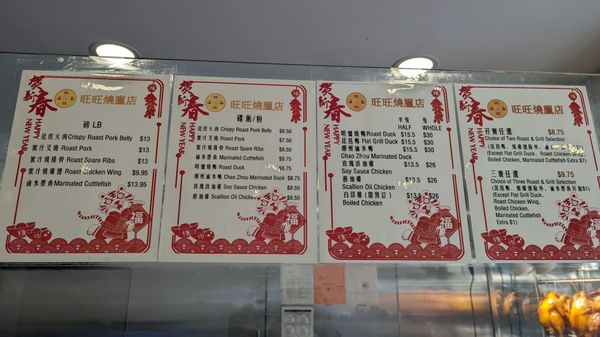 賀新春
HAPPY NEW YEAR
旺旺燒臘店
磅 LB
Crispy Roast Pork Belly $13
蜜汁叉燒 Roast Pork $13
蜜汁燒排骨 Roast Spare Ribs $13
Roast Chicken Wing $9.95
鹵水墨魚 Marinated Cuttlefish $13.95
旺旺燒臘店
Crispy Roast Pork Belly $8.50
蜜汁叉燒 Roast Pork $8.50
蜜汁燒排骨 Roast Spare Ribs $8.50
鹵水墨魚 Marinated Cuttlefish $9.75
Roast Duck $8.75
Chao Zhou Marinated Duck $8.75
玫瑰豉油雞 Soy Sauce Chicken $8.50
蔥油雞 Scallion Oil Chicken $8.50
福
賀新春
HAPPY NEW YEAR
旺旺燒臘店
半隻 隻
HALF WHOLE
Roast Duck $15.5 $30
Flat Grill Duck $15.5 $30
$15.5 $30
Chao Zhou Marinated Duck
玫瑰豉油雞 $13.5 $26
Soy Sauce Chicken
蔥油雞 $13.5 $26
Scallion Oil Chicken
白切雞 $13.5 $26
Boiled Chicken
福
賀新春
HAPPY NEW YEAR
旺旺燒臘店
$8.75
Choice of Two Roast & Grill Selection
(Except Flat Grill Duck, Roast Chicken Wing,
Boiled Chicken, Marinated Cuttlefish Extra $1)
三寶任選 $9.75
Choice of Three Roast & Grill Selection
(Except Flat Grill Duck,
Roast Chicken Wing,
Boiled Chicken,
Marinated Cuttlefish
Extra $1)